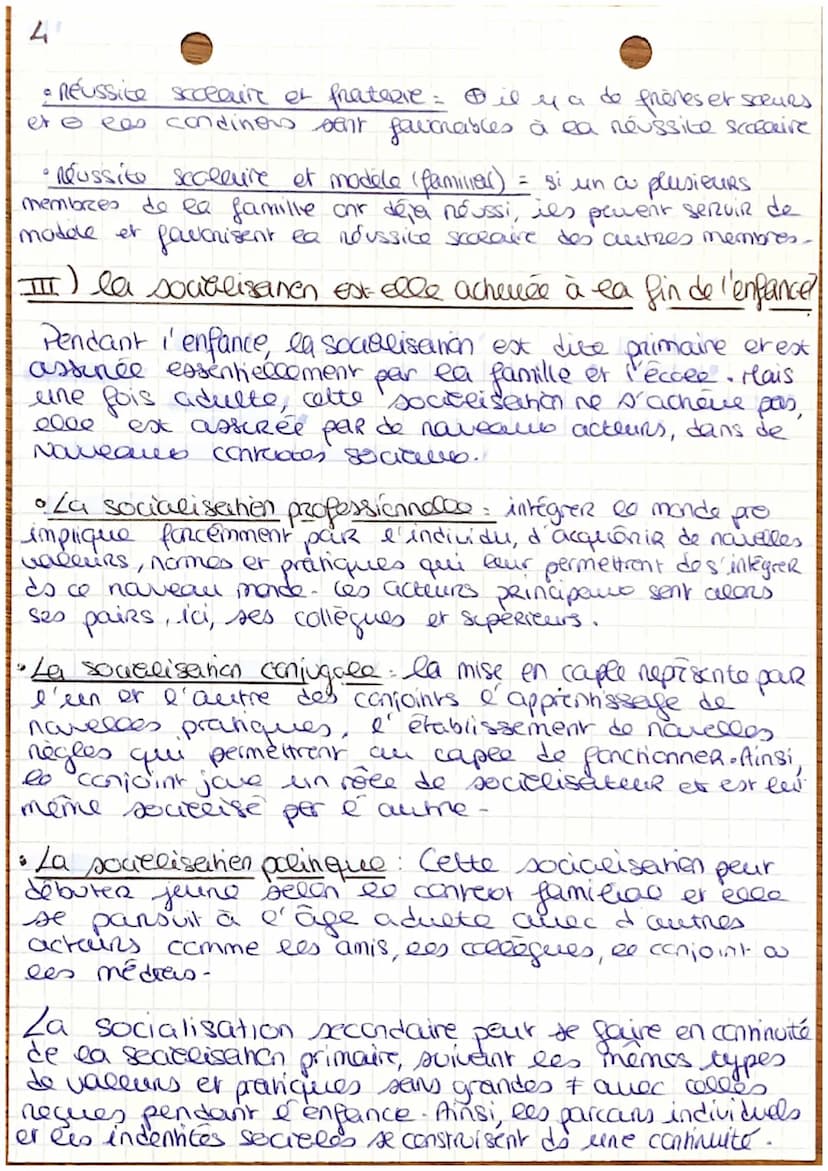 4
• Réussite scolaire et fraterie = ⊕ il y a de frères et sœurs
et ⊖ les conditions sont favorables à la réussite scolaire
• Réussite scolaire et modèle (familial) = si un ou plusieurs
membres de la famille ont déjà réussi, ils peuvent servir de
modèle et favorisent la réussite scolaire des autres membres.
III) la socialisation est-elle achevée à la fin de l'enfance?
Pendant l'enfance, la socialisation est dite primaire et est
assurée essentiellement par la famille et l'école. Mais
une fois adulte, cette socialisation ne s'achève pas,
elle est assurée par de nouveaux acteurs, dans de
nouveaux contextes sociaux.
• La socialisation professionnelle : intégrer le monde pro
implique forcémment par l'individu, d'acquérir de nouvelles
valeurs, normes et pratiques qui leur permettront de s'intégrer
ds ce nouveau monde. Les acteurs principaux sont alors
ses pairs, ici, ses collègues et supérieurs.
• La socialisation conjugale : la mise en couple représente pour
l'un et l'autre des conjoints l'apprentissage de
nouvelles pratiques, l'établissement de nouvelles
règles qui permettront au couple de fonctionner. Ainsi,
le conjoint joue un rôle de socialisateur et est lui
même socialisé par l'autre.
• La socialisation politique : Cette socialisation peut
débuter jeune selon le contexte familial et elle
se poursuit à l'âge adulte avec d'autres
acteurs comme les amis, les collègues, le conjoint ou
les médias.
La socialisation secondaire peut se faire en continuité
de la socialisation primaire, suivant les mêmes types
de valeurs et pratiques sans grandes ≠ avec celles
reçues pendant l'enfance. Ainsi, les parcours individuels
et les indentités sociales se construisent ds une continuité.